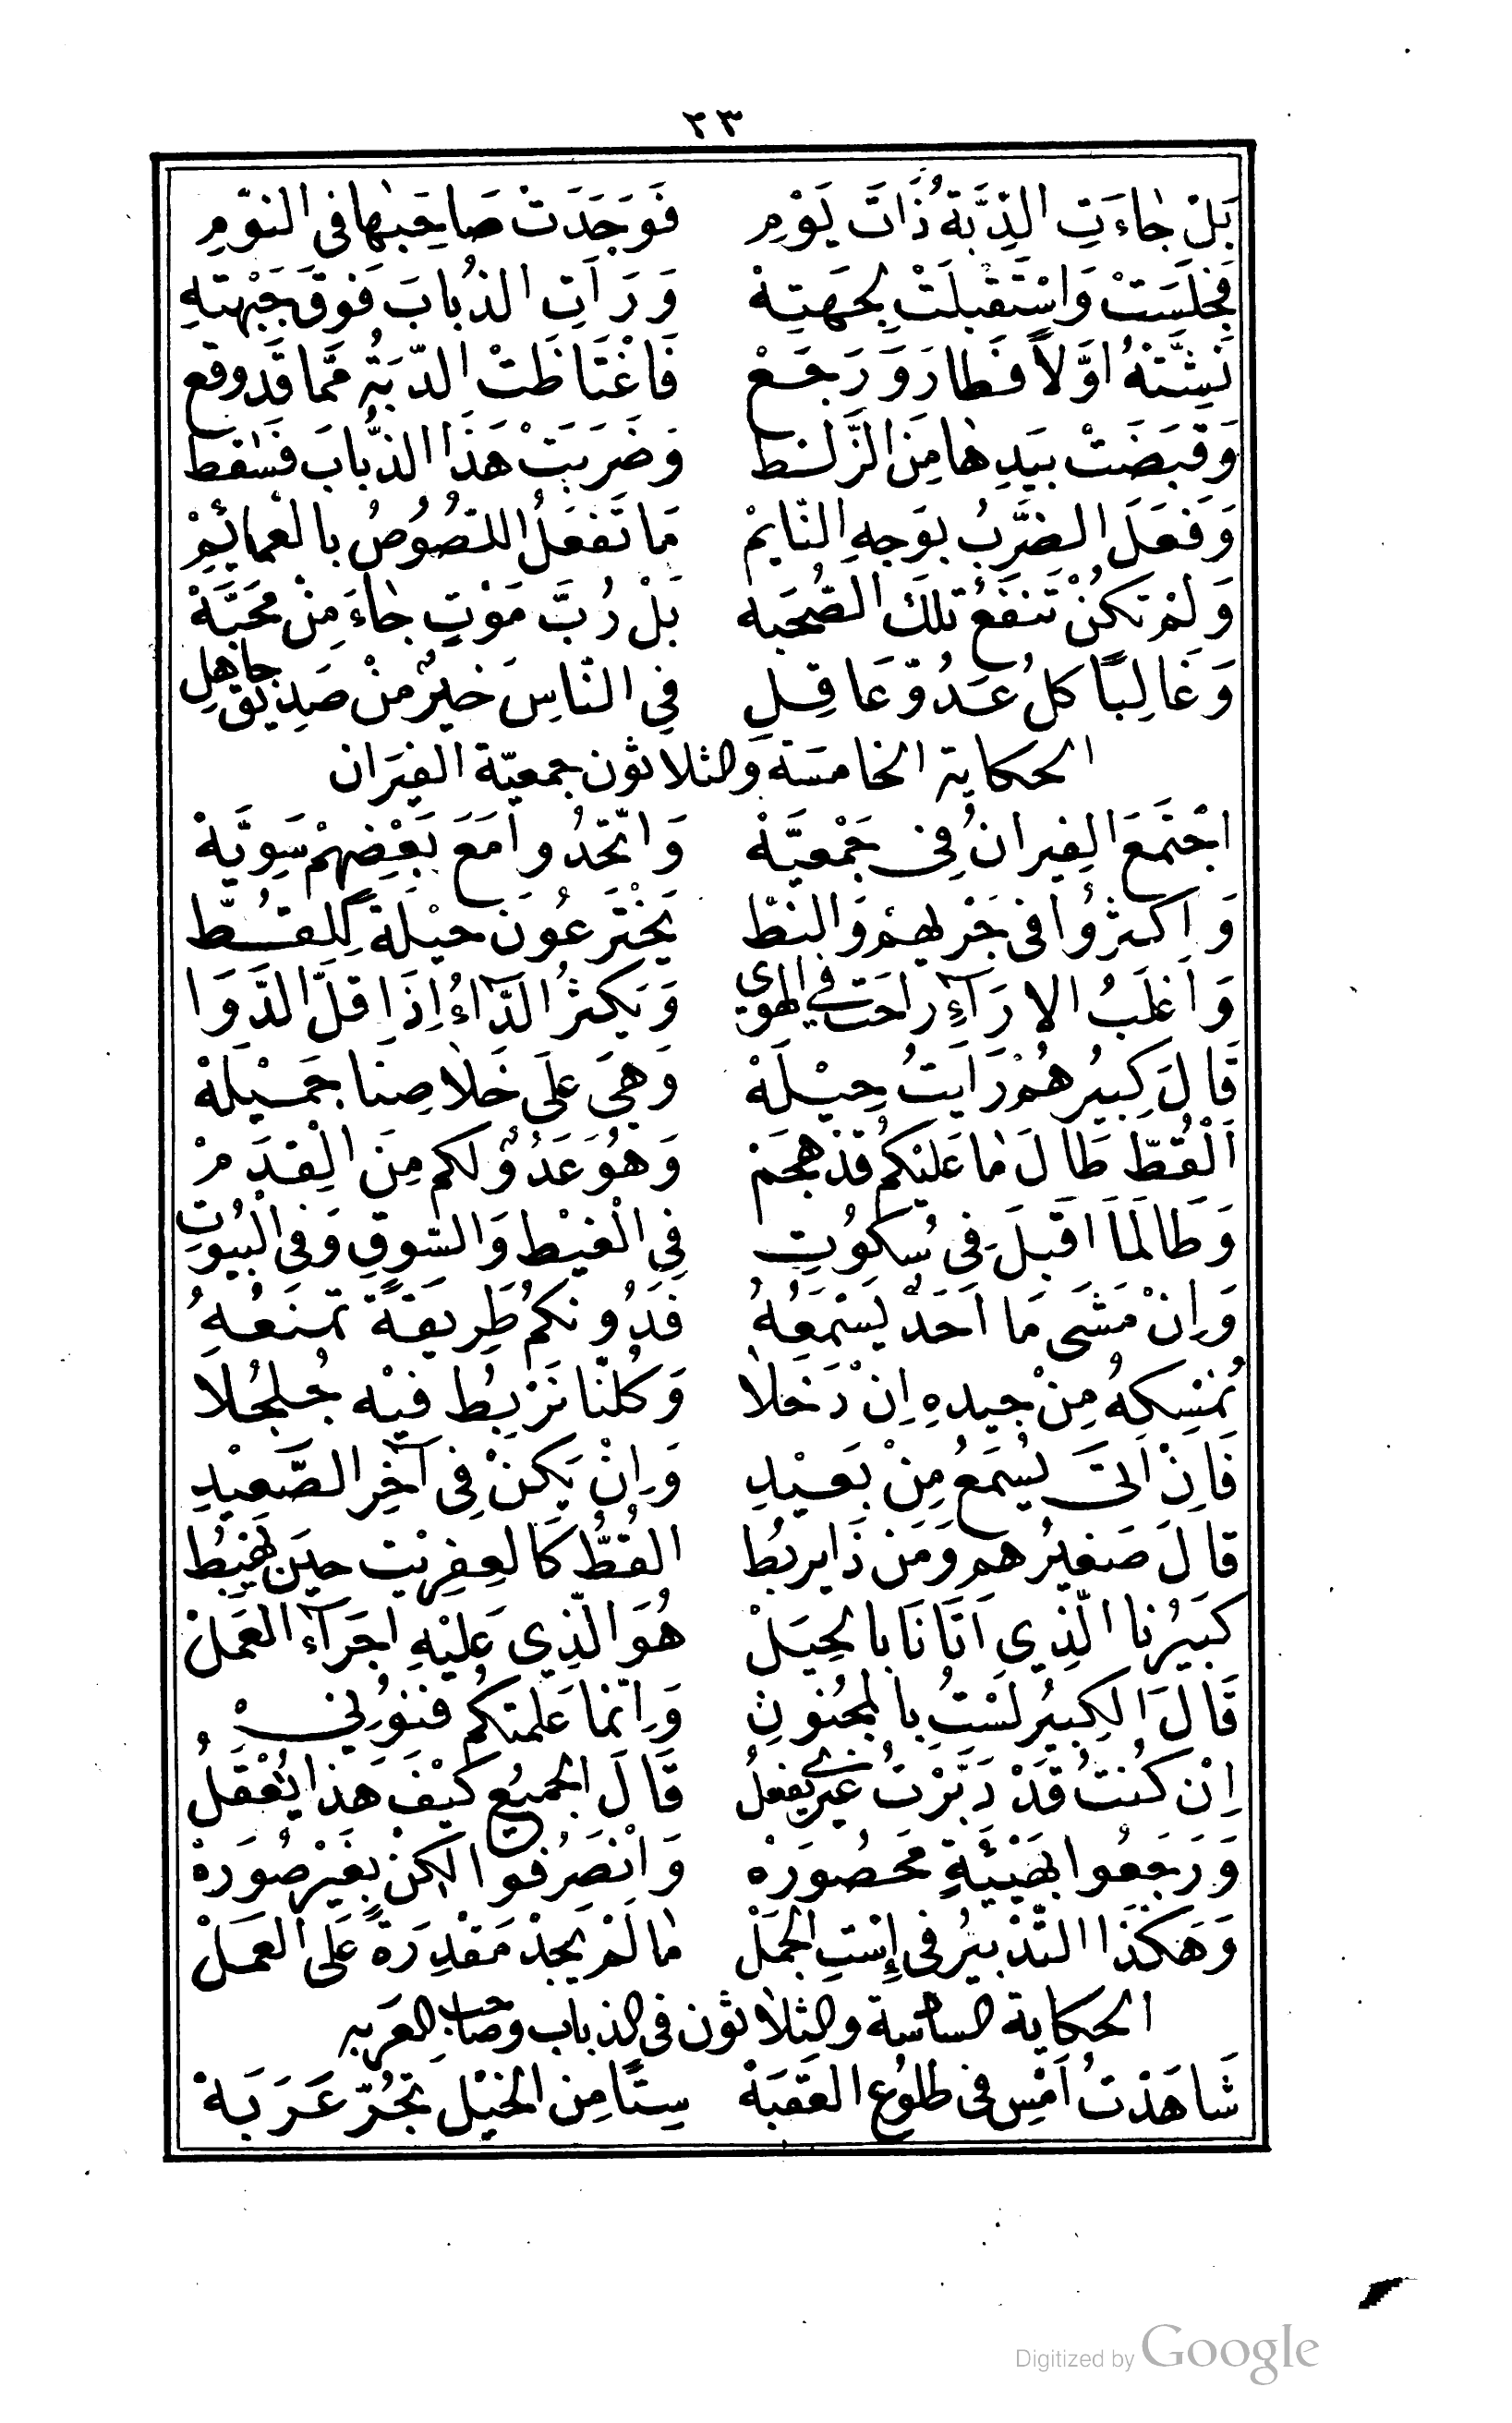 ٢٣
بَلْ جٰاءَتِ الدِّبَّةُ ذَاتَ يَوْمِ فَوَجَدَتْ صَاحِبَهٰا فى النوّمِ
فَجَلَسَتْ وَاسْتَقْبلَتْ لِجَهتِهْ وَرَأتِ الذُبابَ فَوقَ جَبْهتهِ
نَشَّتهُ اوَّلاً فَطارَ وَرَجَعْ فَاغْتَاظَتْ الدّبَةُ مّمَا قَد وقع
وَقَبَضَتْ بيَدِهٰا مِنَ الزَّلَط وَضَرَبَتْ هَذَا الذُّبابَ فسَقط
وَفَعَلَ الضَّربُ بوَجهِ النّايمْ مَا تَفعَلُ اللصُوُصُ بالعمايِمْ
وَلمْ تكُنْ تَنفَعُ تلكَ الصُّحبه بَلْ رُبَّ مَوْتٍ جٰاءَ مِنْ مَحَبَّهْ
وَغَالِبًا كلُ عَدُوّ عَاقِلِ فِي النّاسِ خيرٌ منْ صَدِيقٍ جاهلِ
الحكاية الخامسَة والثلاثون جمعيّة الفيرَان
اجْتَمعَ الفِيرانُ فِى جَمْعيَّهْ وَاتّحَدُوا مَعَ بَعْضِهمْ سَوِيَّهْ
وَاكثرُوا فى جَرْيهِمْ وَالنطّ يَخْتَرعُونَ حيْلَةً لِلقُطّ
وَاَغلَبُ الارَآءِ راحَت في الهوى وَيَكثرُ الدَّآءُ اِذَا قلَّ الدَّوَا
قَالَ كِبيرُهُمْ رَاَيتُ حِيْلَهْ وَهِىَ عَلَى خَلاٰصِنَا جَمَيْلهْ
اَلْقُطّ طَالَ مٰا عَليْكُم قدْ هجَم وَهُوَ عَدُوٌ لكم مِنَ القِدَمْ
وَطَالَماَ اَقبلَ فى سُكوُتِ فِي الْغيْط وَالسّوقِ وَفى الْبيُوتِ
وَاِنْ مَشَى مَا اَحَدٌ يَسْمَعُهُ فَدُونكُم طَرِيقةً تمنَعُهُ
نُمْسِكهُ مِنْ جيدهِ اِنْ دَخَلاٰ وَكُلّنا نَرْبُط فيْه جُلجُلا
فَاِنْ اَتَى يُسْمَعُ مِنْ بَعيْدِ وَاِنْ يَكنْ فِى آخِرِ الصَّعيْدِ
قالَ صَغيرُهم وَمَن ذَا يربُط القُطُّ كَالعِفِريْت حيَن يَهْبِطُ
كَبَيرُنا الّذِي اَتَانَا بالحِيَلْ هُوَ الّذِي عَليْهِ اجرَآءُ العَمَلْ
قَالَ الكِبيرُ لَسْتُ بالمجنونِ وَاِنّما عَلمتكُم فنوُنِي
اِنْ كُنتُ قَدْ دَبّرْتُ غَيْرى يفعلُ قَالَ الجَميُع كيْفَ هَذا يُعْقَلُ
وَرَجَعُوا بهَيْئَةٍ مَحصُورَهْ وَانْصَرَفوا لكِنْ بغيْر صُورَهْ
وَهَكذَا التّدْبيرُ فى اِستِ الجَملْ مٰا لَمْ يَجدْ مَقْدِرَةً عَلى العَمَلْ
الحكاية السادسة والثلاثون فى الذباب وصاحب العربه
شَاهَدْتُ اَمْسِ فى طلوُع العَقَبَهْ سِتًّا مِن الخيْل تَجُرّ عَرَبَهْ
Digitized by Google